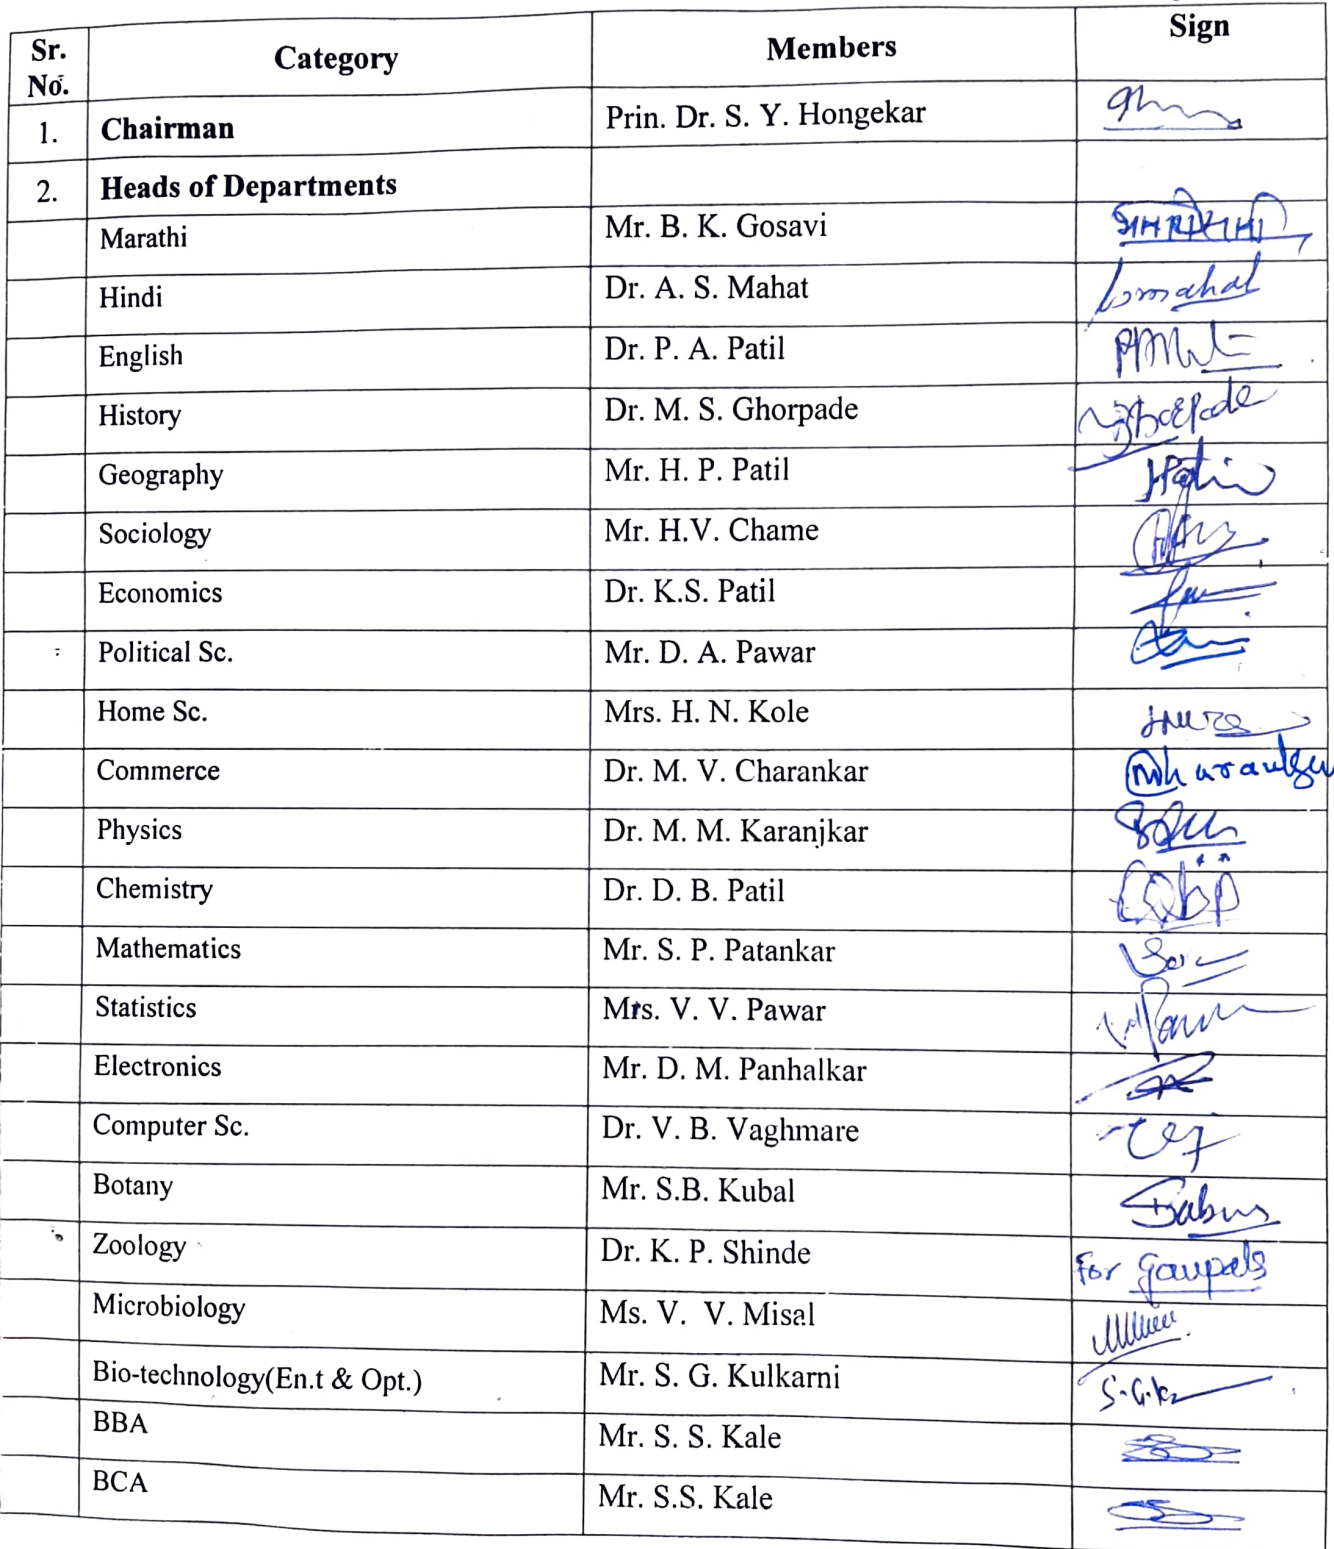 Sr. No. Category Members Sign
1. Chairman Prin. Dr. S. Y. Hongekar
2. Heads of Departments
Marathi Mr. B. K. Gosavi
Hindi Dr. A. S. Mahat
English Dr. P. A. Patil
History Dr. M. S. Ghorpade
Geography Mr. H. P. Patil
Sociology Mr. H.V. Chame
Economics Dr. K.S. Patil
Political Sc. Mr. D. A. Pawar
Home Sc. Mrs. H. N. Kole
Commerce Dr. M. V. Charankar
Physics Dr. M. M. Karanjkar
Chemistry Dr. D. B. Patil
Mathematics Mr. S. P. Patankar
Statistics Mrs. V. V. Pawar
Electronics Mr. D. M. Panhalkar
Computer Sc. Dr. V. B. Vaghmare
Botany Mr. S.B. Kubal
Zoology Dr. K. P. Shinde For
Microbiology Ms. V. V. Misal
Bio-technology(En.t & Opt.) Mr. S. G. Kulkarni
BBA Mr. S. S. Kale
BCA Mr. S.S. Kale